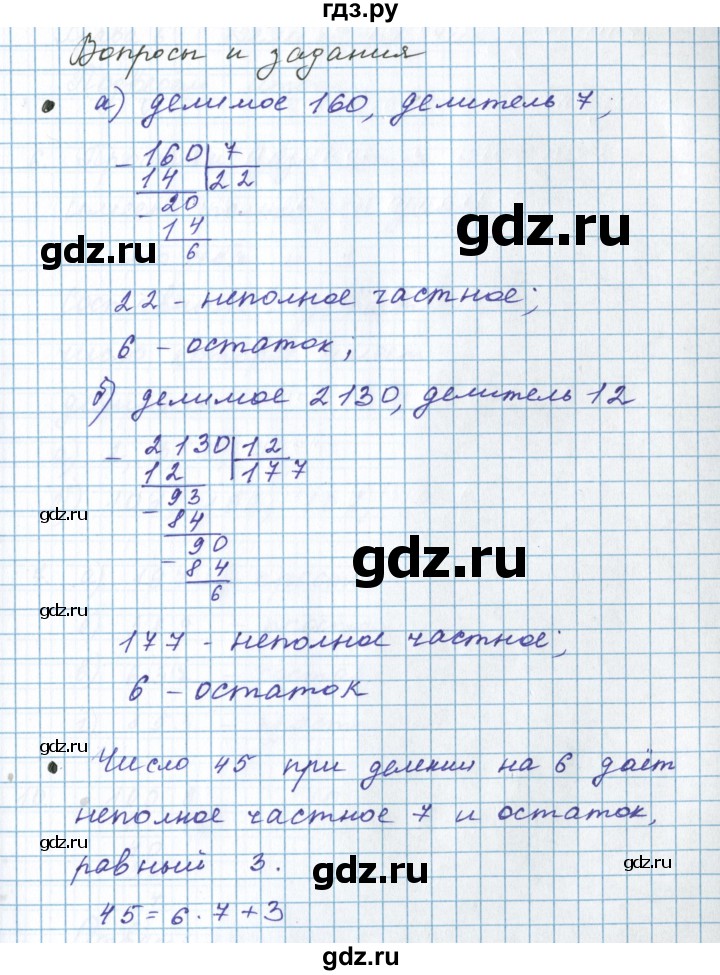 гдз.ру
Вопросы и задания
а) делимое 160, делитель 7;
- 160 7
14 22
- 20
14
6
gdz.ru
gdz.ru
22 - неполное частное;
6 - остаток;
б) делимое 2130, делитель 12
- 2130 12
12 177
- 93
84
gdz.ru
- 90
84
6
gdz.ru
gdz.ru
177 - неполное частное;
6 - остаток
gdz.ru
Число 45 при делении на 6 даёт
неполное частное 7 и остаток,
равный 3.
gdz.ru
gdz.ru
gdz.ru
45 = 6 · 7 + 3
gdz.ru